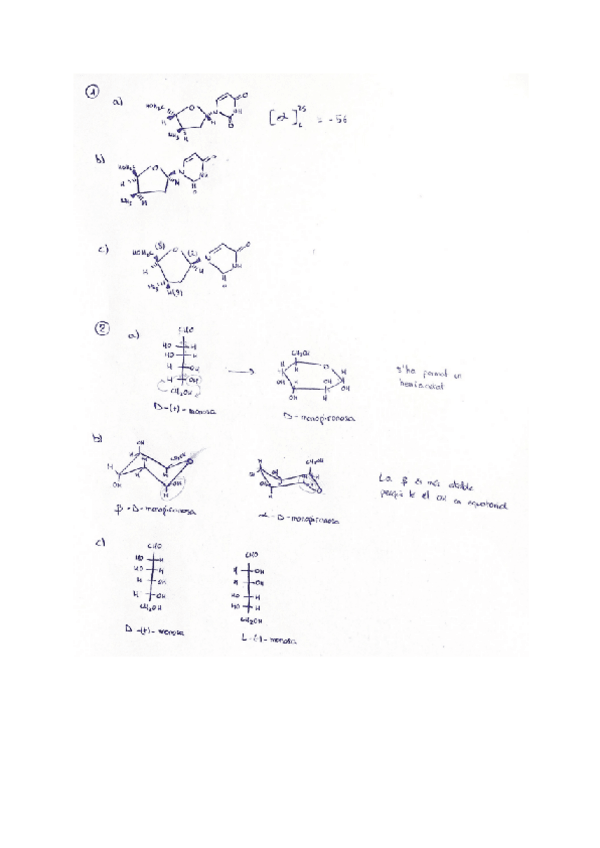 1
a)
HOH₂C O N O NH O H H NH₂ H
[α]²⁵ = -56
b)
HOH₂C O N NH H H NH₂ H
c)
HOH₂C (S) O N O NH H H NH₂ H (S)
2
a)
CHO
HO H
HO H
H OH
H OH
CH₂OH
D-(+)-manosa
CH₂OH
O
H
OH
OH
H
D-manopiranosa
S'ha format un
hemiacetal
b)
OH
CH₂OH
O
H
OH
H
β-D-manopiranosa
CH₂OH
O
H
α-D-manopiranosa
La β és més estable
perquè té el OH en equatorial
c)
CHO
HO H
HO H
H OH
H OH
CH₂OH
D-(+)-manosa
CHO
H OH
H OH
HO H
HO H
CH₂OH
L-(-)-manosa